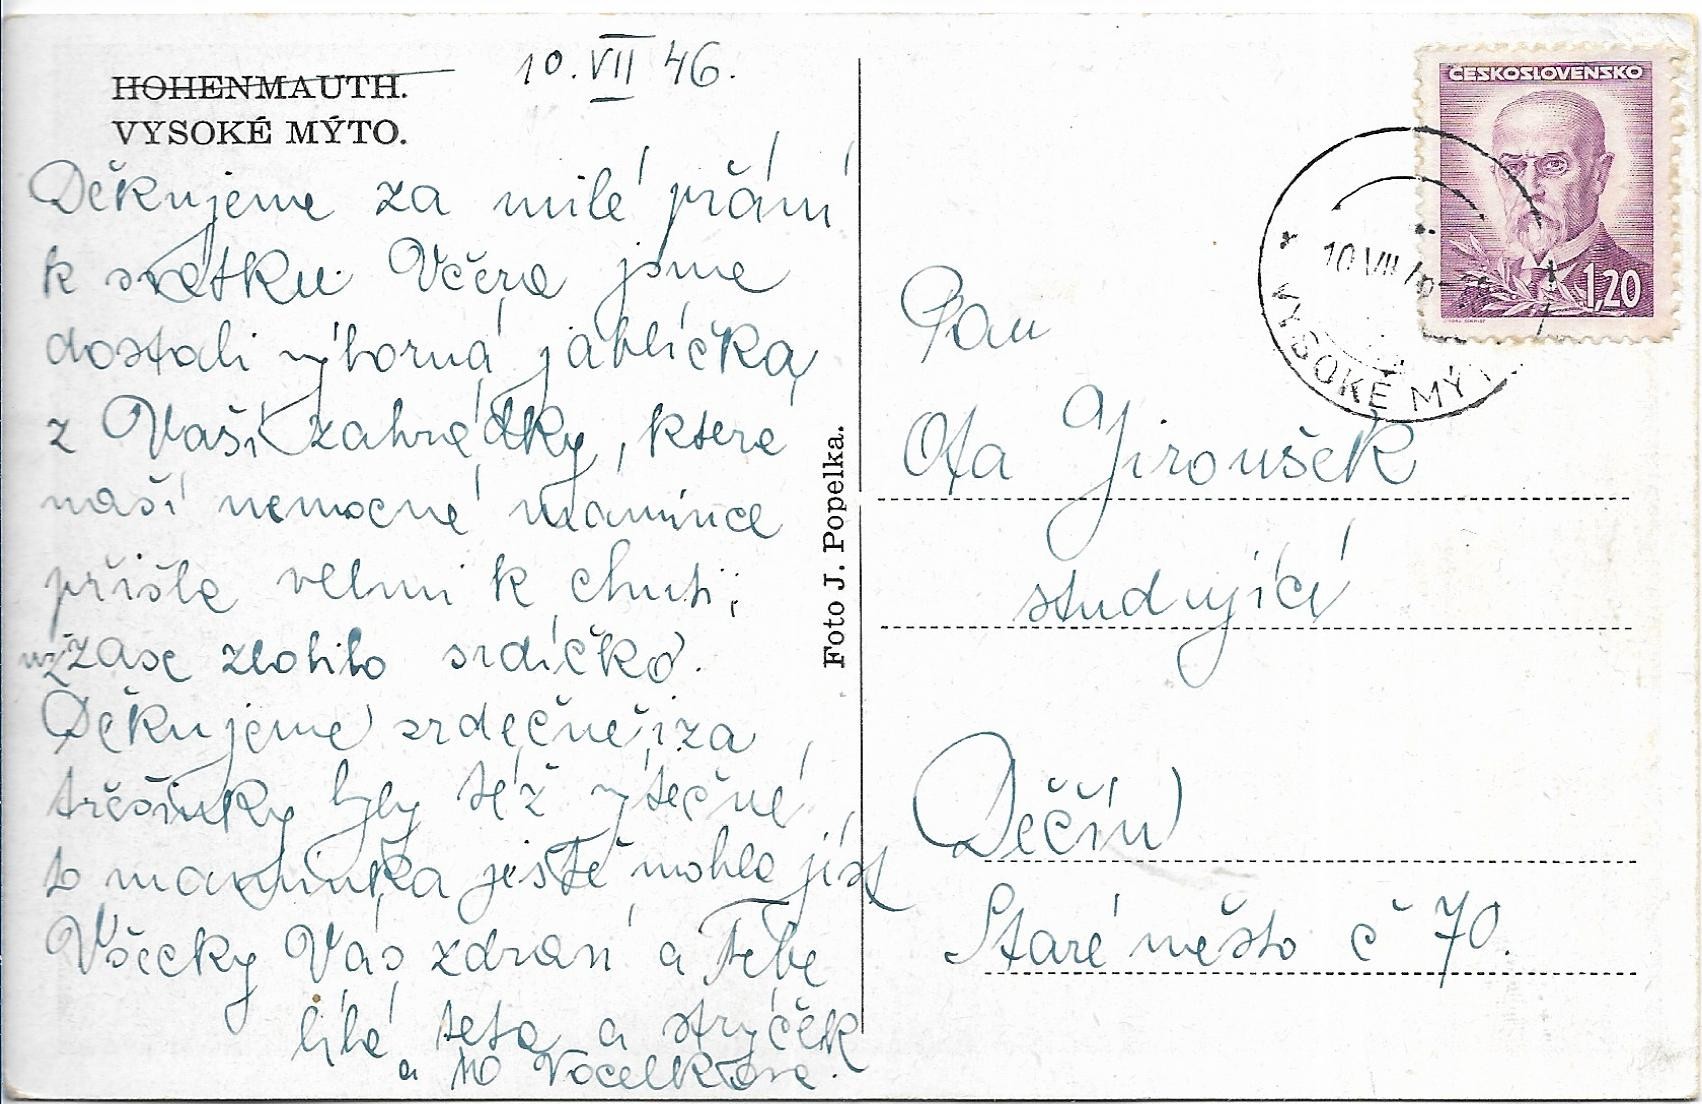 HOHENMAUTH.
VYSOKÉ MÝTO.
10. VII 46.
Děkujeme za milé přání
k svátku. Včera jsme
dostali výborná jablíčka
z Vaší zahrádky, která
naší nemocné mamince
přišla velmi k chuti;
zase zlobilo srdíčko.
Děkujeme srdečně i za
třešinky byly též výtečné,
to maminka ještě mohla jíst
Všecky Vás zdraví a Tebe
líbá teta a strýček
a
Foto J. Popelka.
ČESKOSLOVENSKO
1,20
10 VII
VYSOKÉ MÝT
Pan
Ota Jiroušek
studující
Děčín
Staré město č 70.